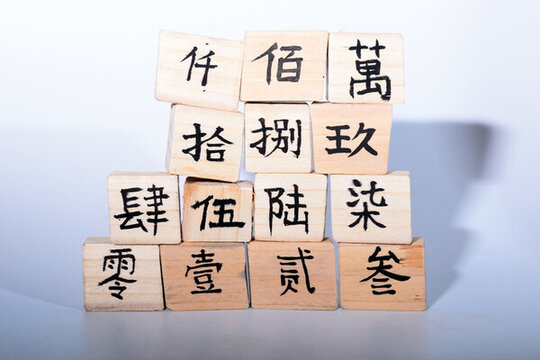 仟佰萬
拾捌玖
肆伍陆柒
零壹贰叁